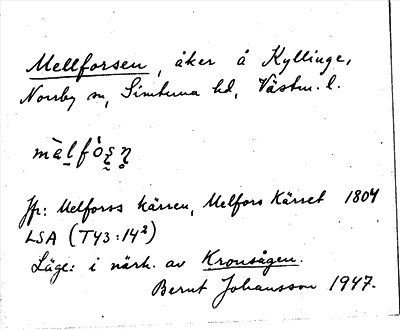 Mellforsen, åker å Kyllinge,
Norrby sn, Simtuna hd, Västm. l.
Jfr: Melforss kärren, Melfors Kärret 1804
LSA (T43:14²)
Läge: i närh. av Kronsågen.
Bernt Johansson 1947.